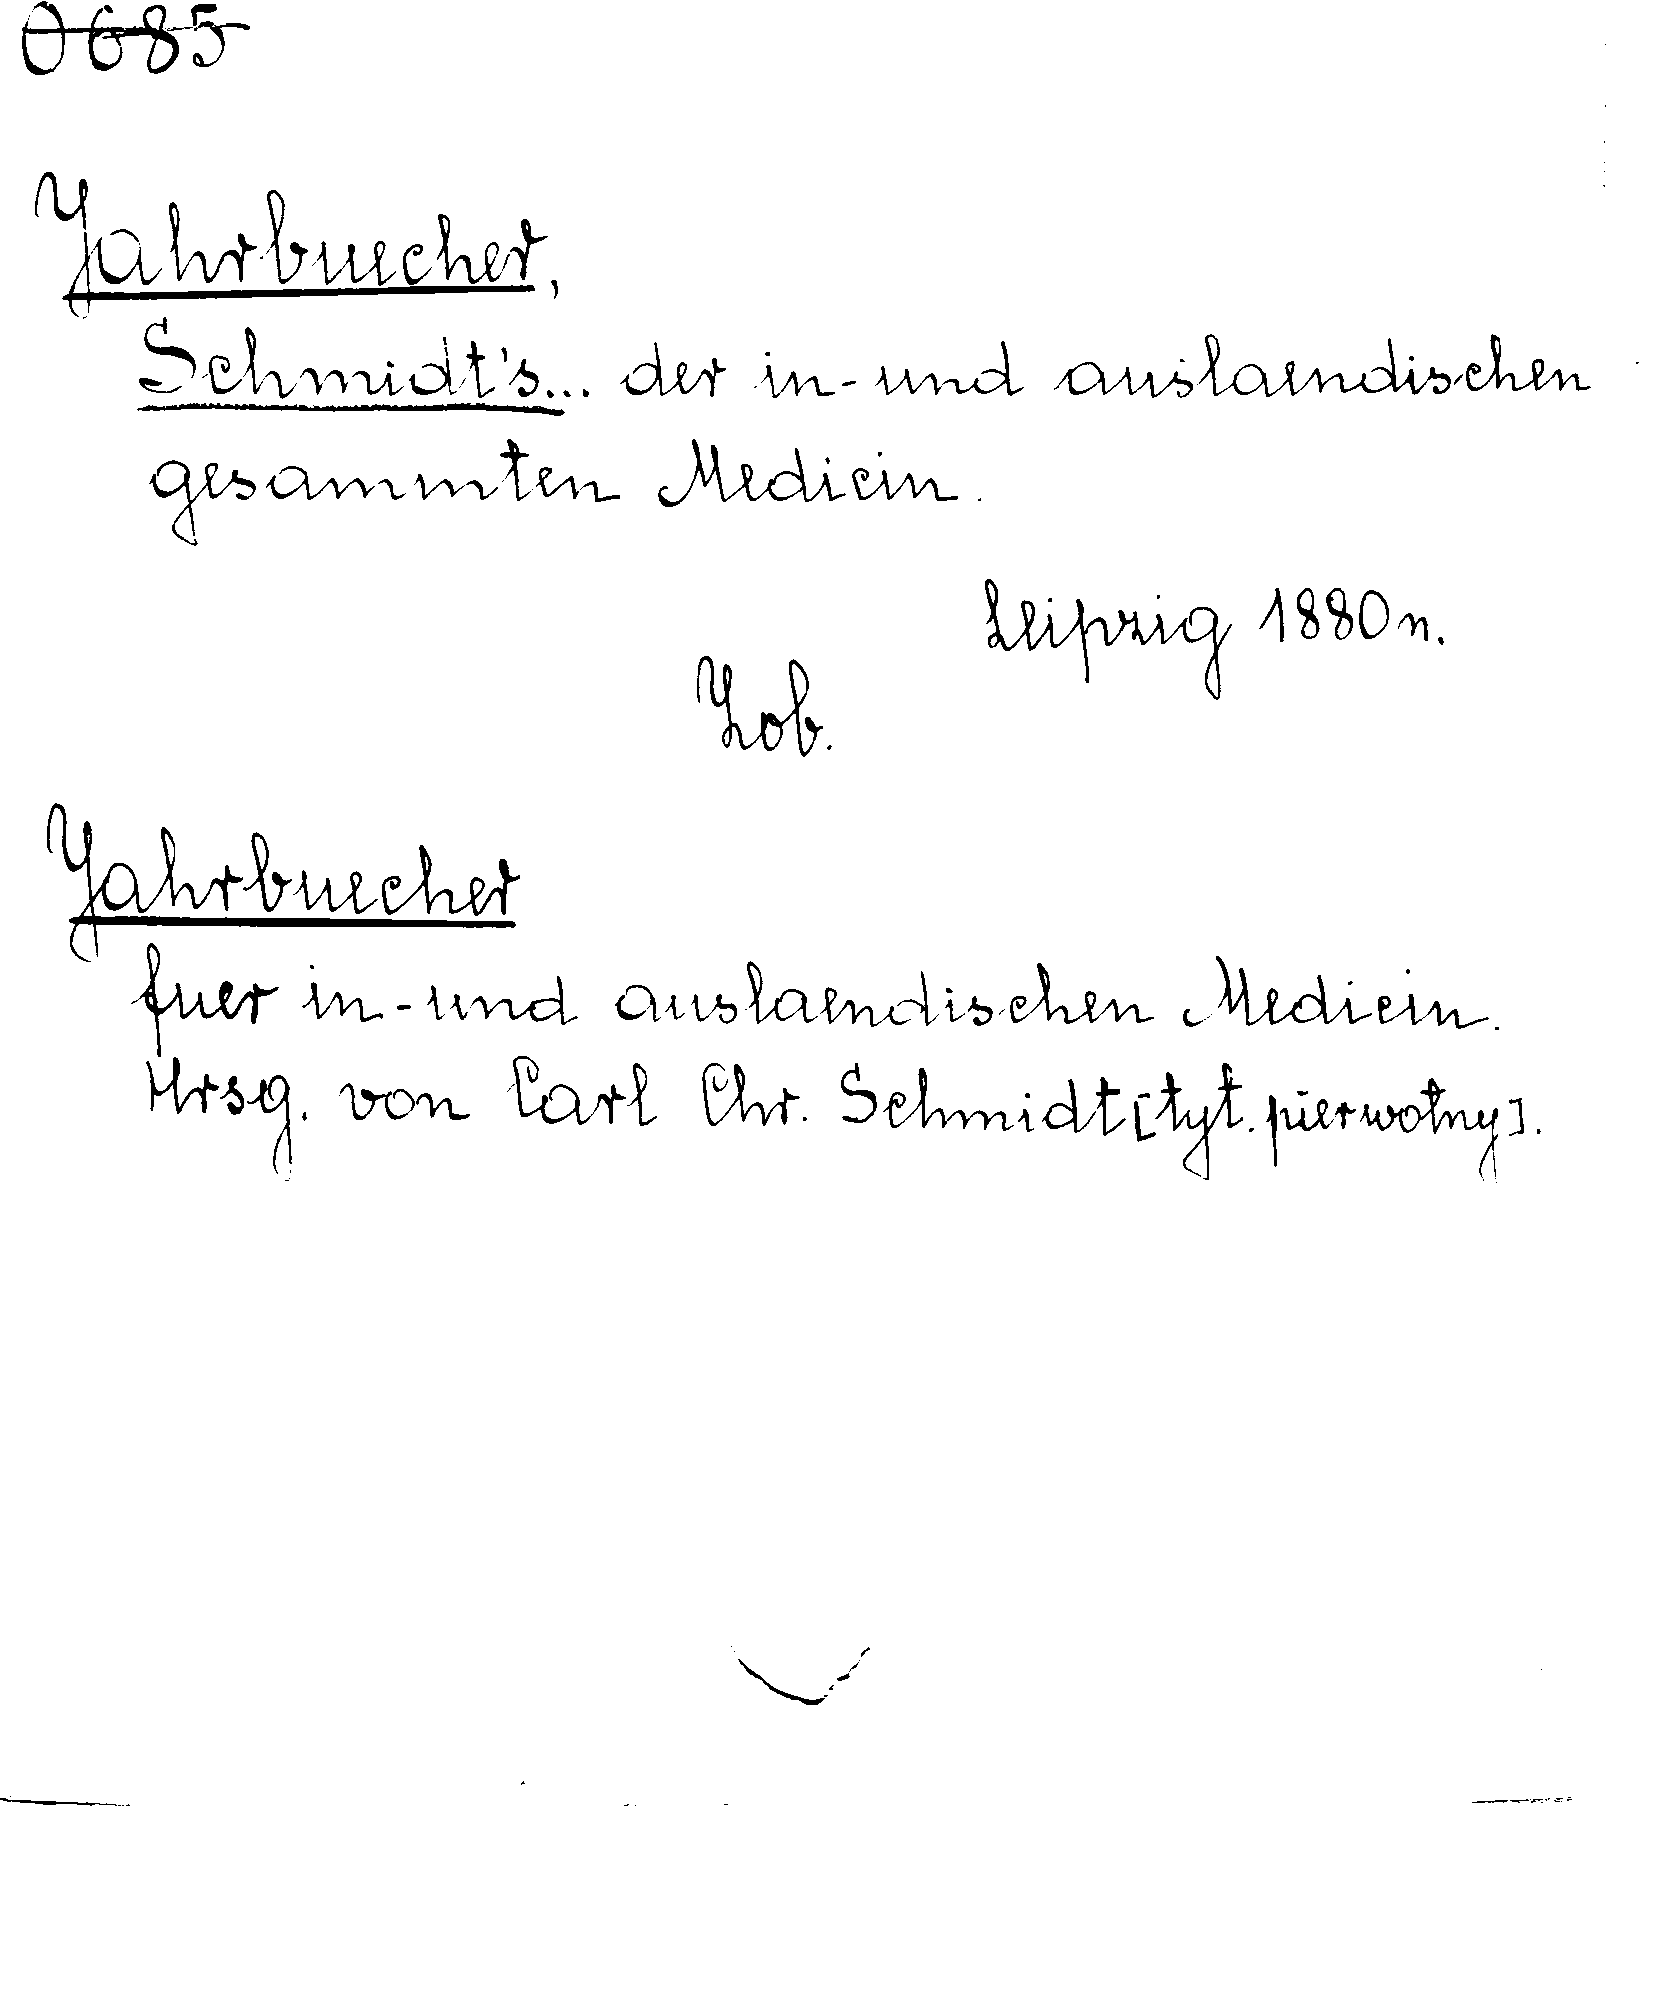 0685
Jahrbuecher,
Schmidt's... der in- und auslaendischen
gesammten Medicin.
Leipzig 1880 n.
Zob.
Jahrbuecher
fuer in- und auslaendischen Medicin.
Hrsg. von Carl Chr. Schmidt [tyt. pierwotny].